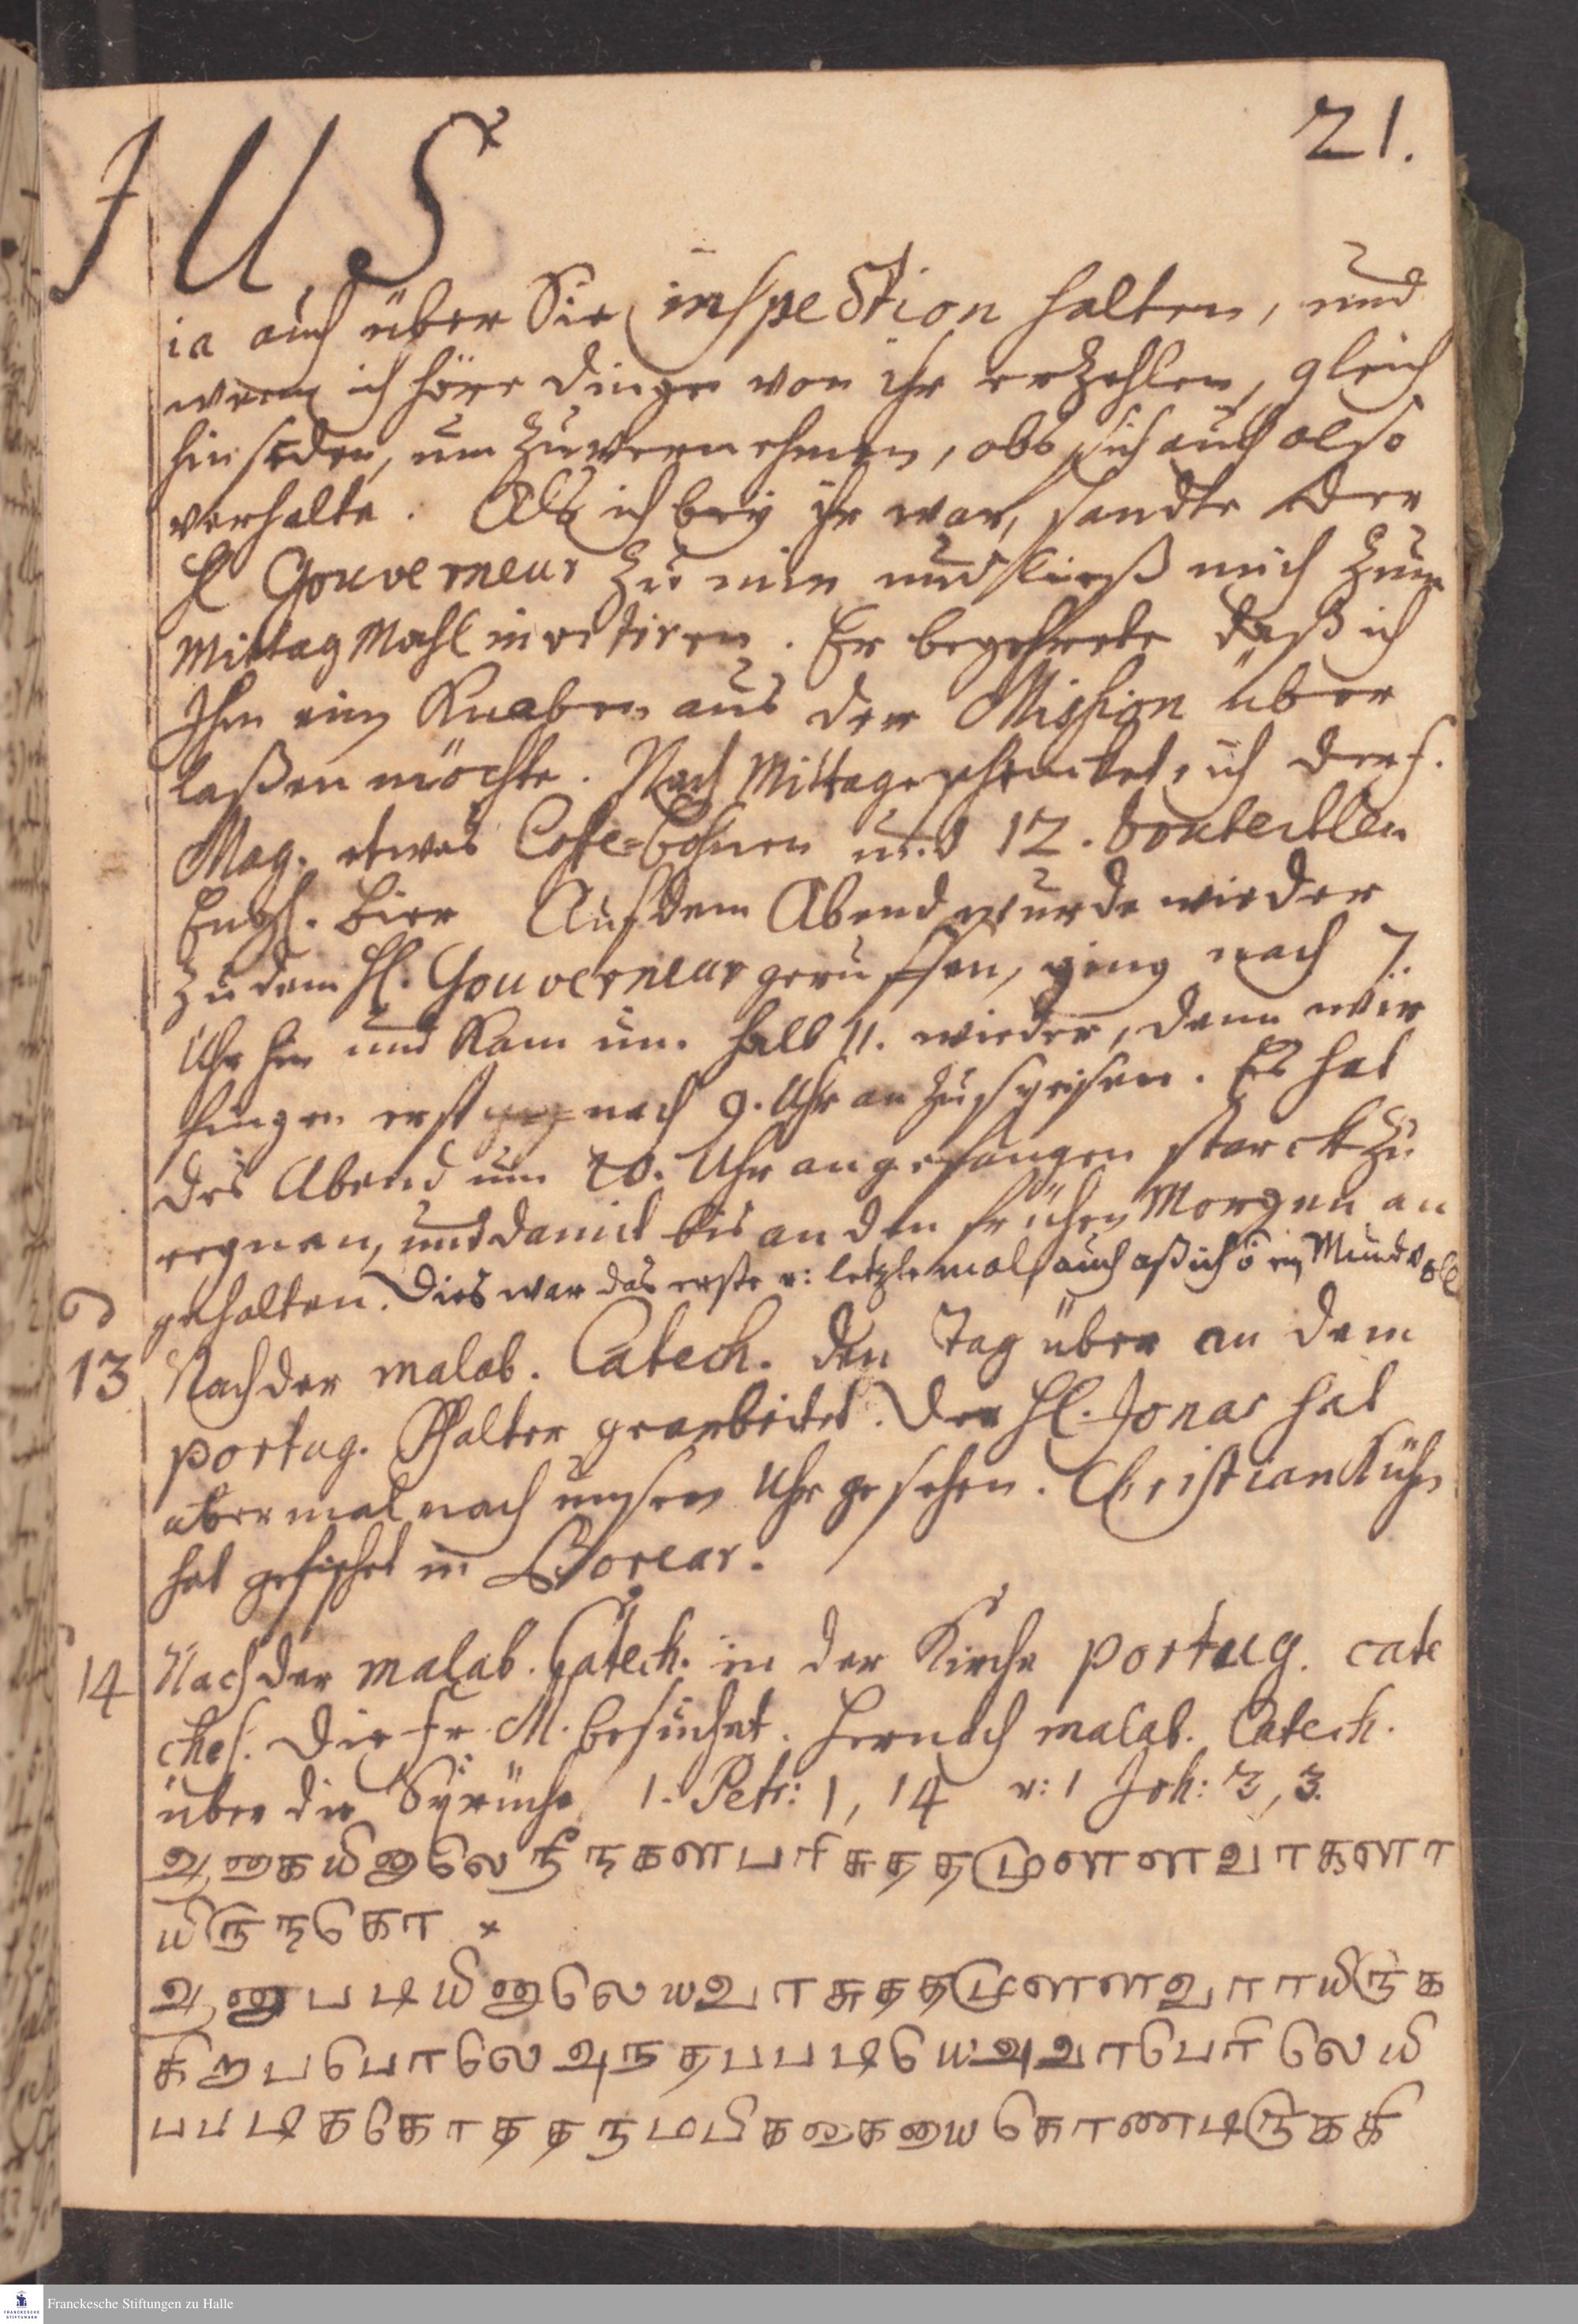 21.
J U S
ia auch über Sie inspection halten, und
wenn ich höre dinge von ihr erzehlen, gleich
hinseden, um zuvernehmen, obs sich auch also
verhalte. Als ich bey ihr war, sandte der
H Gouverneur zu mir und ließ mich zum
Mittag Mahl invitiren. Er begehrete daß ich
Ihm ein Knaben aus der Mission über
laßen möchte. Nach Mittage schenckete ich der f.
Mag. etwas Cofe-bohnen und 12. bouteillen
Engl. Bier Auf dem Abend wurde wieder
zu dem H. Gouverneur geruffen, ging nach 7.
Uhr hin und kam um halb 11. wieder, denn wir
fingen erst nach 9. Uhr an zu speisen. Es hat
des Abend um 10. Uhr angefangen starck zu
regnen, und damit bis an den frühen Morgen an
gehalten. Dies war das erste u: letzte mal, auch aß ich ein Mundvoll
13 Nach der malab. Catech. den Tag über an dem
portug. Psalter gearbeitet. Der H. Jonas hat
abermal nach unser Uhr gesehen. Christian Kühn
hat gefischet in Borear.
14 Nach der malab. Catech. in der Kirche portug. cate
ches. Die Fr. M. besuchet. Hernach malab. Catech.
über die Sprüche 1. Petr: 1, 14 u: 1 Joh: 3, 3.
ஆகையினாலே நீஙகள பரிசுததமுளளவரகளா
யிருஙகொ
ஆனபடியினாலேயவரசுததமுளளவராயிருக
கிறபபோலே அநதபபடியே அவர பேரிலேயி
பபடிககொததநமபிககையைகொணடிருககி